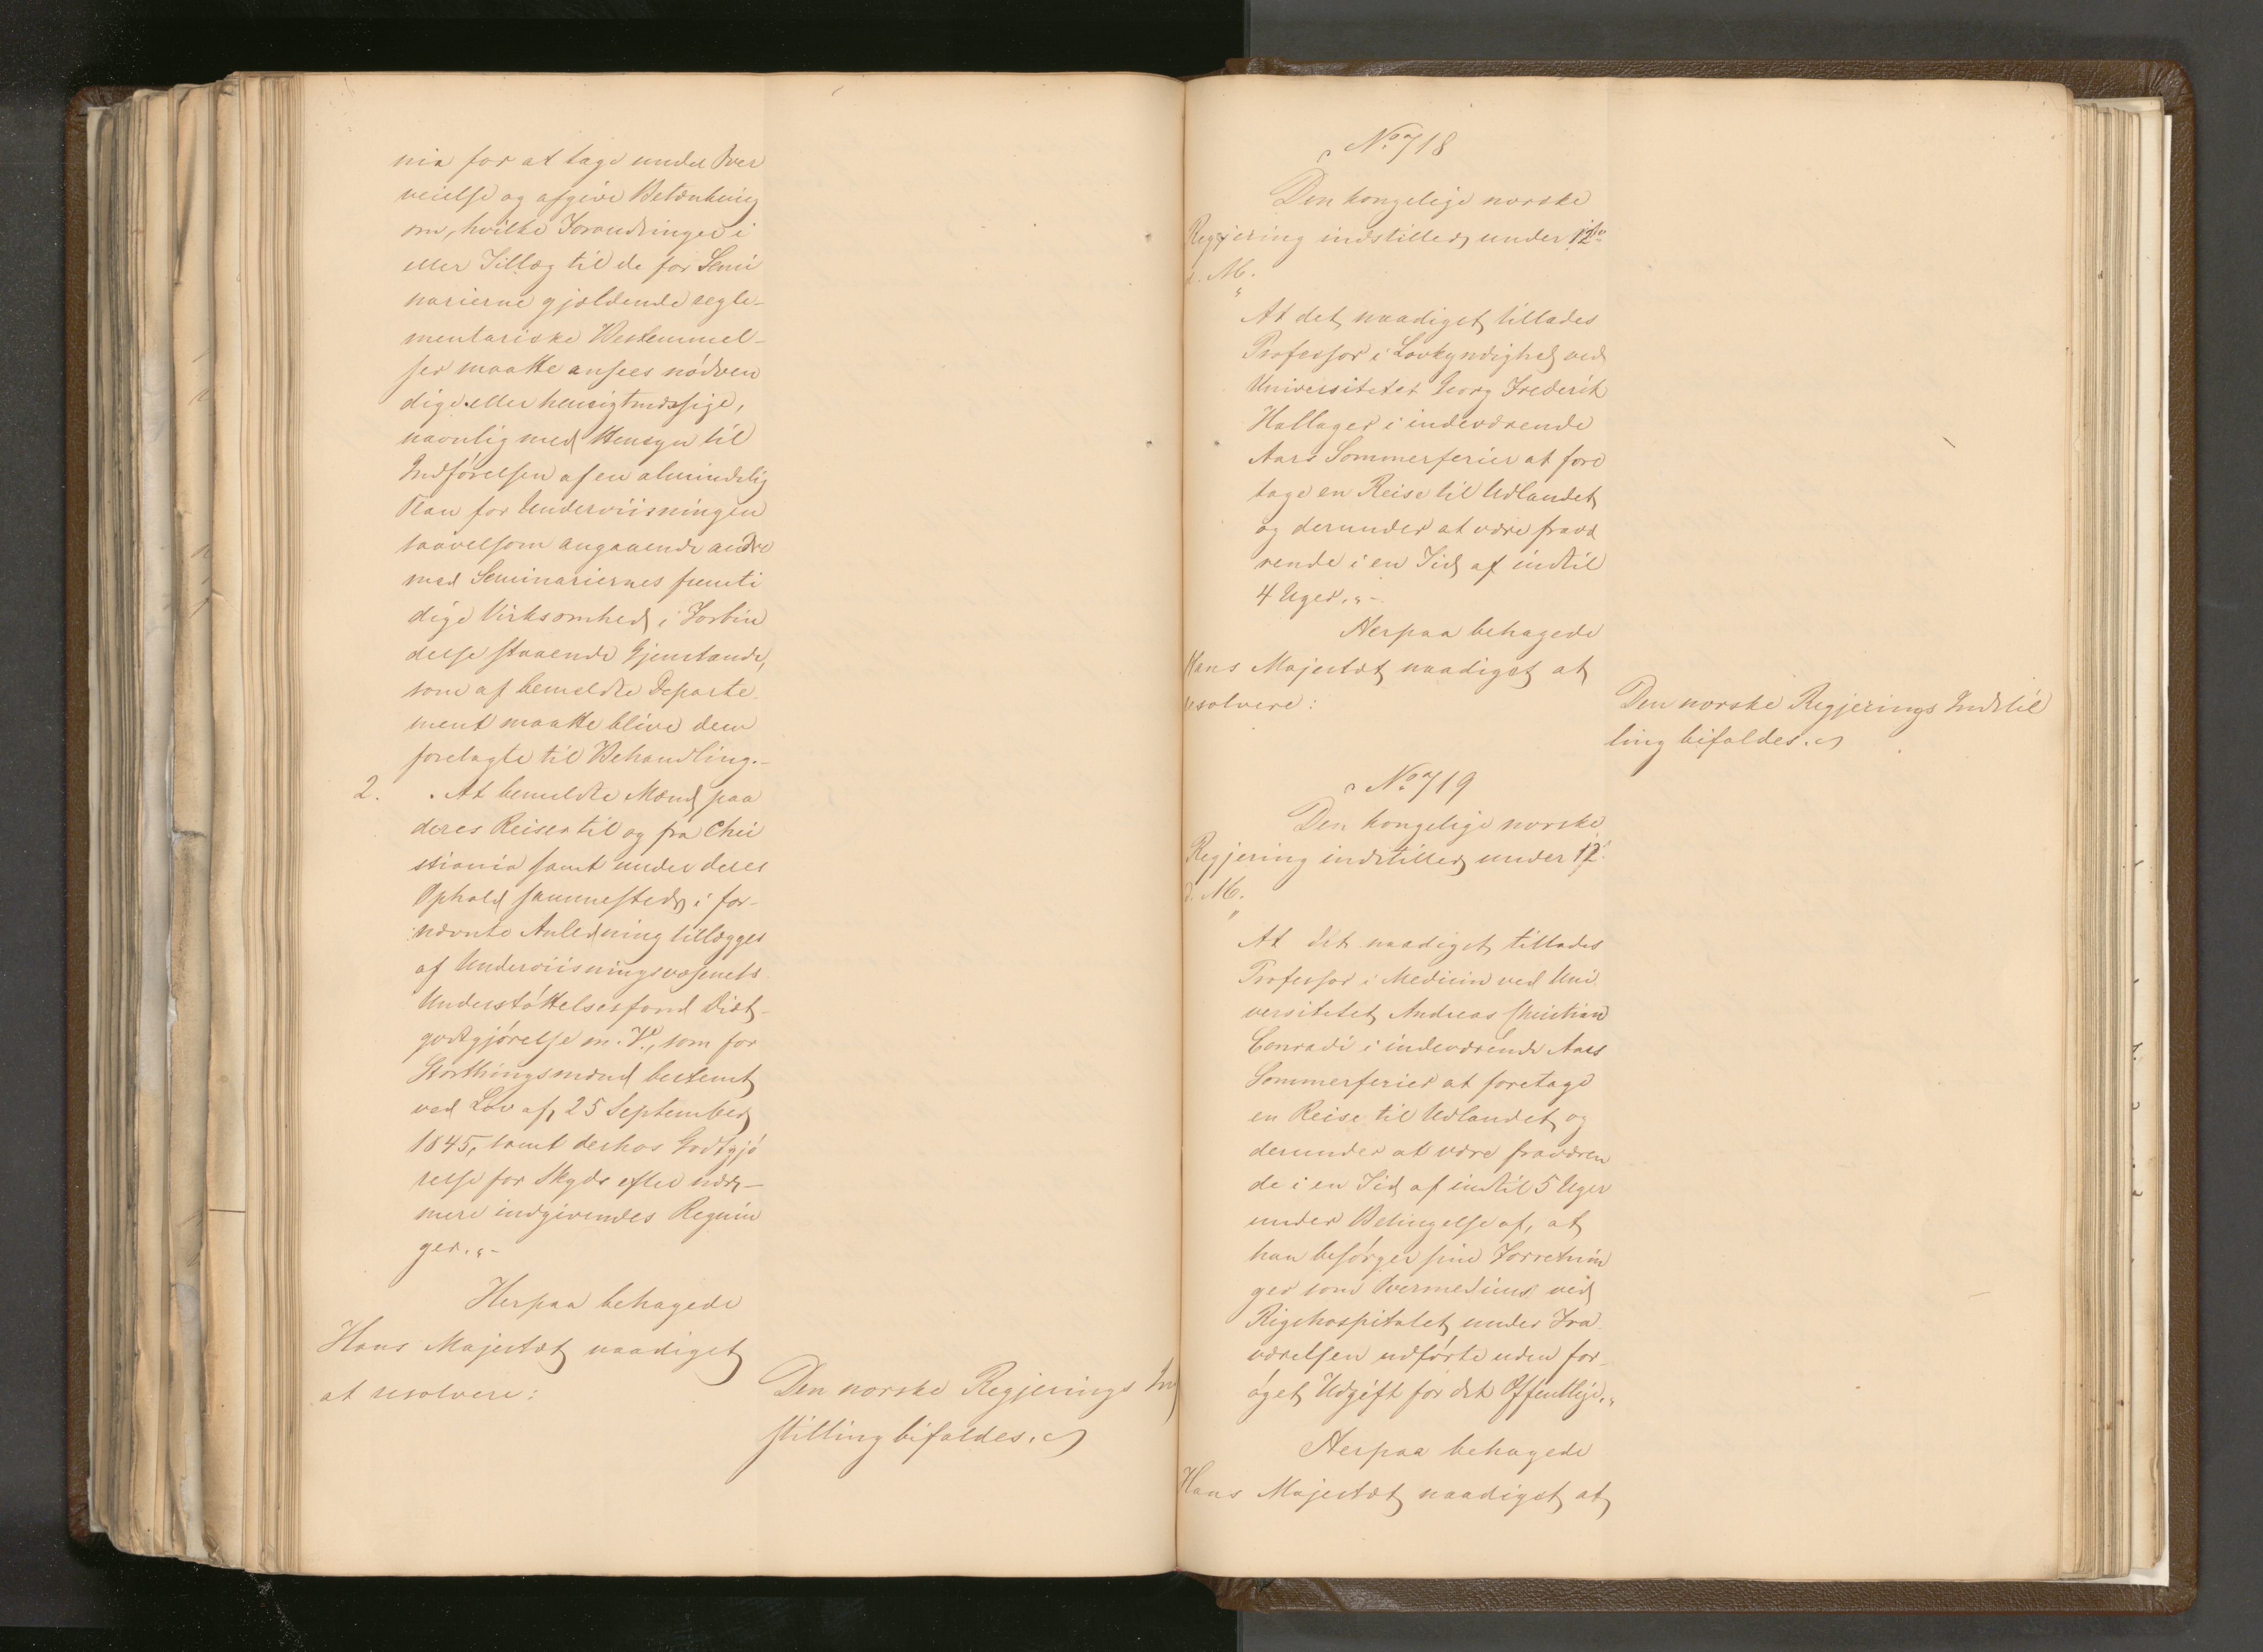 nia for at tage under Over
veielse og afgive Betænkning
om, hvilke Forandringer i
eller Tillæg til de for Semi
narierne gjældende regle-
mentariske Bestemmel-
ser maatte ansees nødven
dige eller hensigtmæssige,
navnlig med Hensyn til
Indførelsen af en almindelig
Plan for Underviisningen
saavelsom angaaende andre
med Seminariernes fremti
dige Virksomhed i Forbin
delse staaende Gjenstande,
som af bemeldte Departe-
ment maatte blive dem
forelagte til Behandling.-
2. At bemeldte Mænd paa
deres Reiser til og fra Chri
stiania samt under deres
Ophold sammesteds i for-
nævnte Anledning tillægges
af Underviisningsvæsenets
Understøttelsesfond Diæt-
godtgjørelse m. V., som for
Storthingsmænd bestemt
ved Lov af 25 September
1845, samt derhos Godtgjø
relse for Skyds efter nær-
mere indgivendes Regnin
ger."-
Herpaa behagede
Hans Majestæt naadigst
at resolvere:
Den norske Regjerings In
stilling bifaldes.
No 718
Den kongelige norske
Regjering indstiller under 12te
d. M.
"
At det naadigst tillades
Professor i Lovkyndighed ved
Universitetet Georg Frederik
Hallager i indeværende
Aars Sommerferier at fore
tage en Reise til Udlandet
og derunder at være fravæ
rende i en Tid af indtil
4 Uger."-
Herpaa behagede
Hans Majestæt naadigst at
resolvere:
Den norske Regjerings Indstil
ling bifaldes.
No 719
Den kongelige norske
Regjering indstiller under 12
d. M.
"
At det naadigst tillades
Professor i Medicin ved Uni
versitetet Andreas Christian
Conradi i indeværende Aars
Sommerferier at foretage
en Reise til Udlandet og
derunder at være fraværen
de i en Tid af indtil 5 Uger
under Betingelse af, at
han besørger sine Forretnin
ger som Overmedicus ved
Rigshospitalet under Fra
værelsen udførte uden for-
øget Udgift for det Offentlige."
Herpaa behagede
Hans Majestæt naadigst at